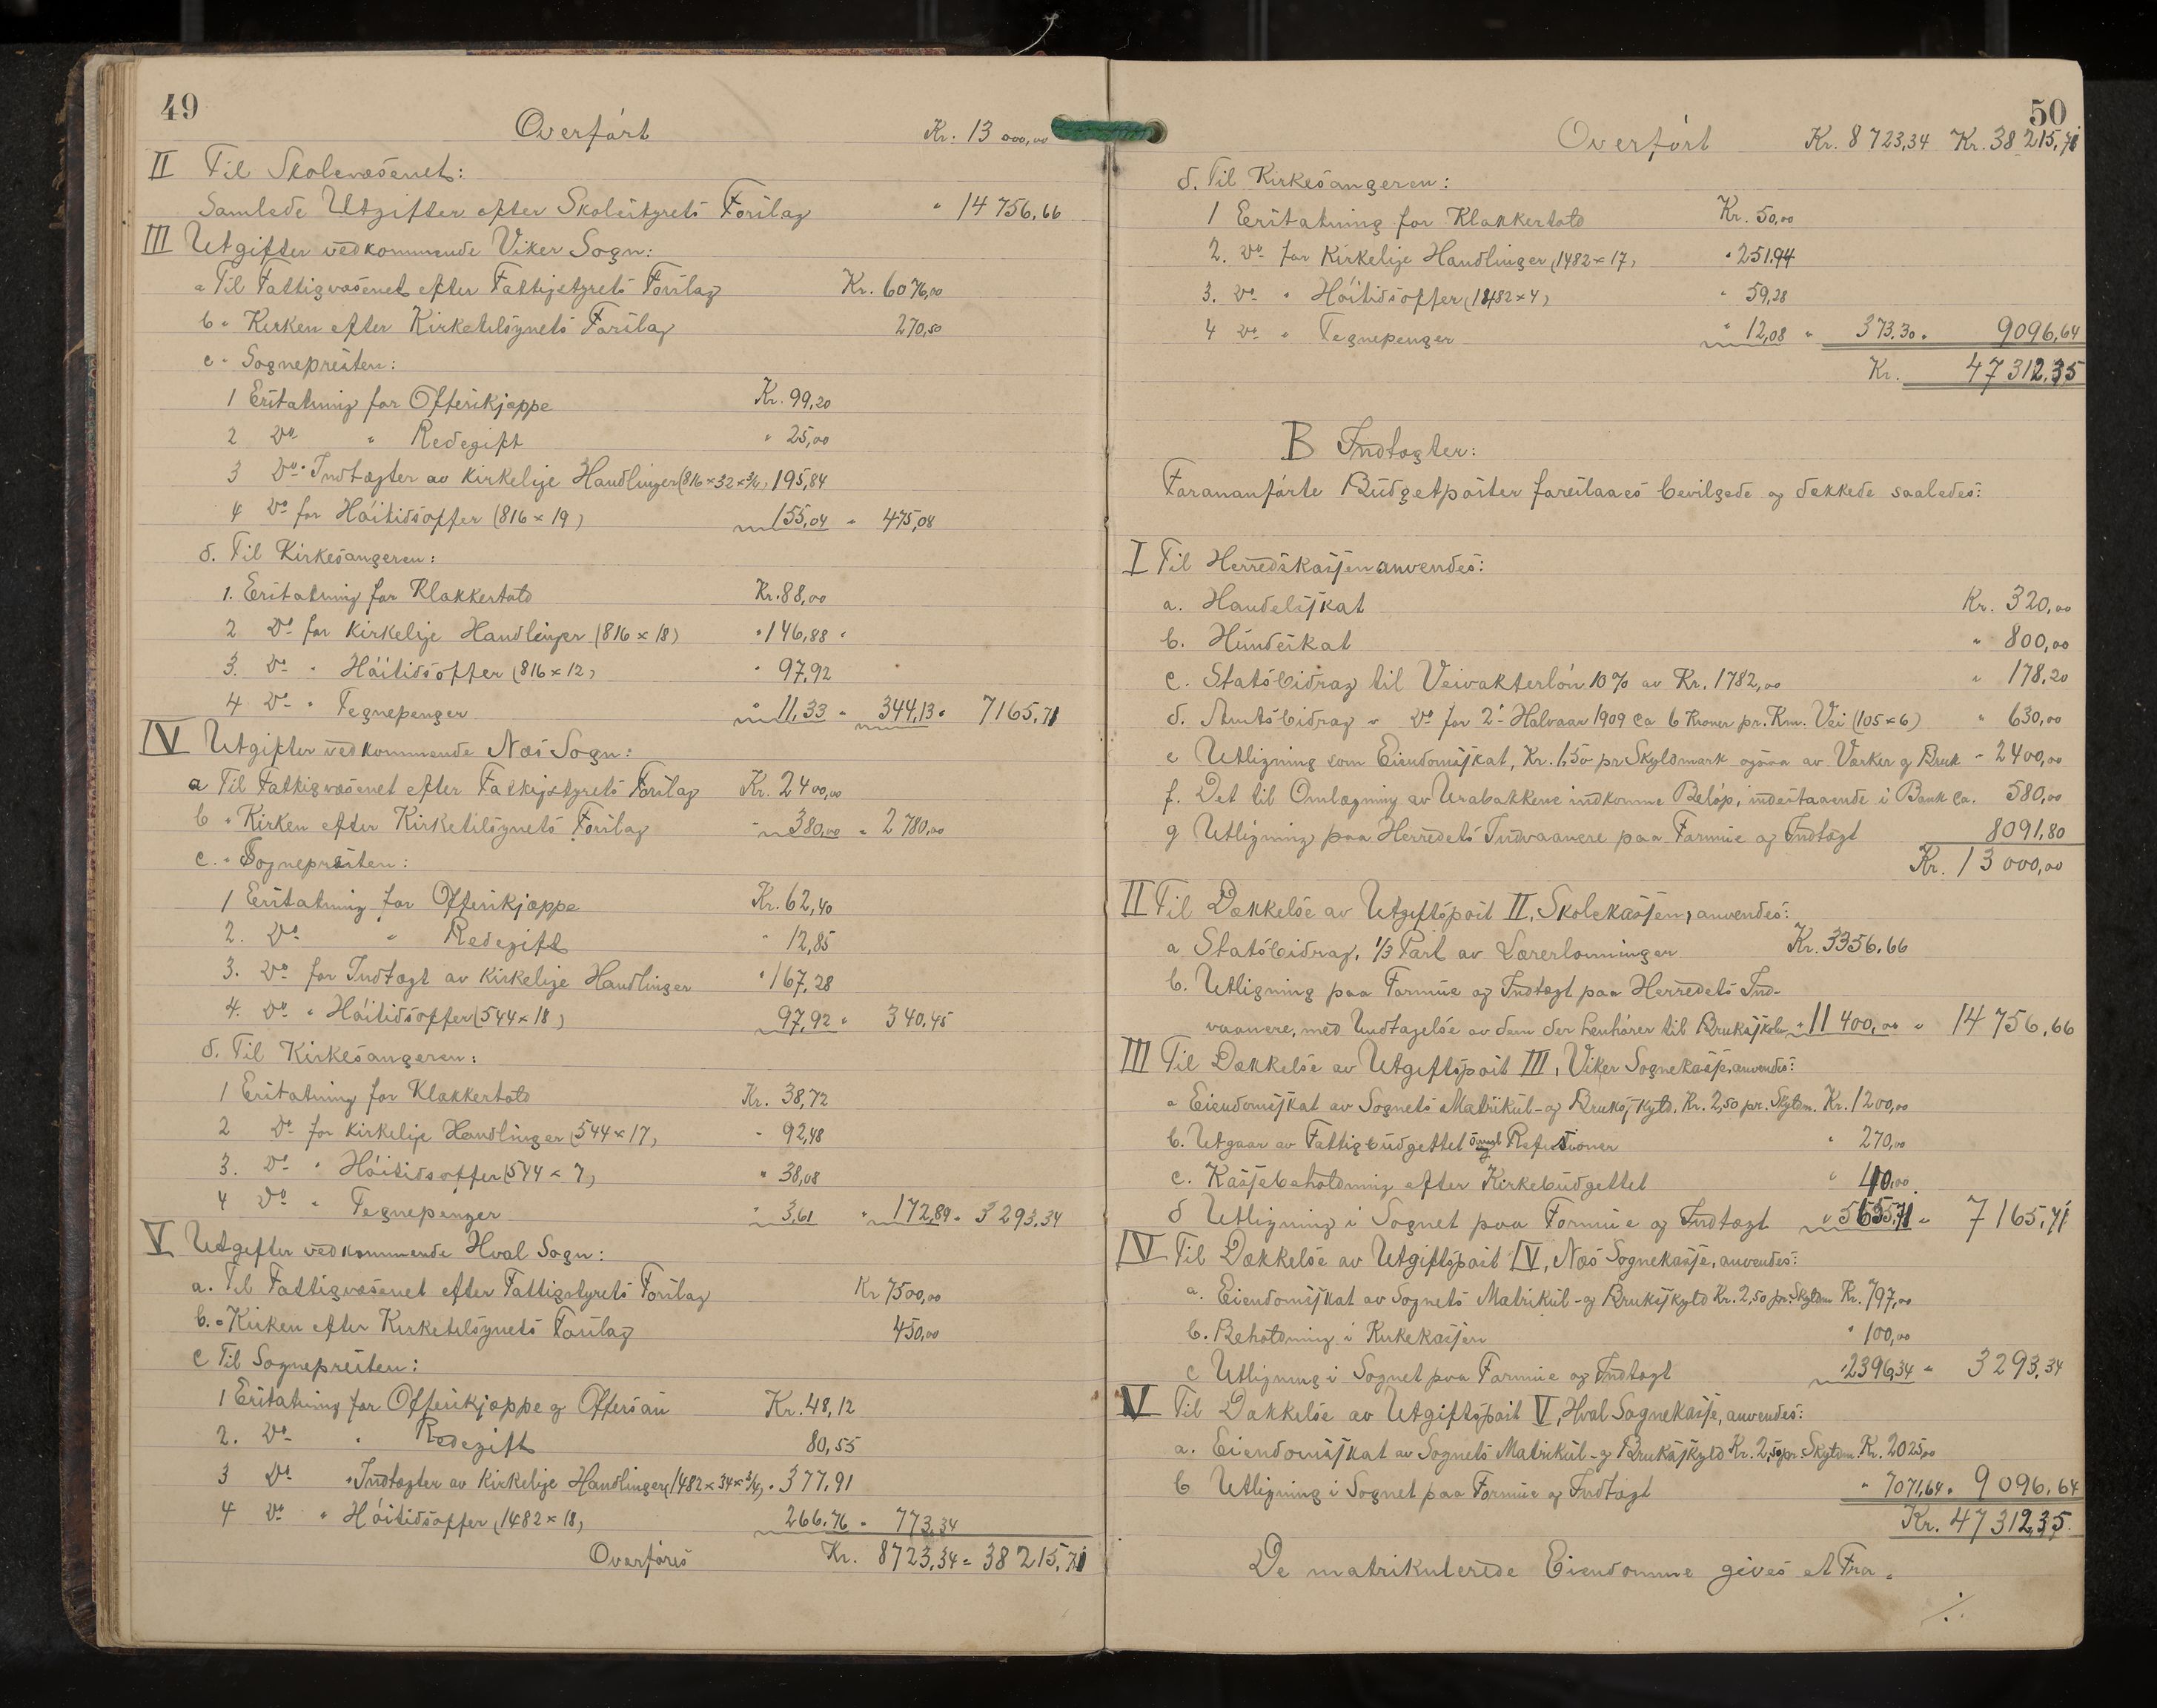 49
Overført Kr. 13 000,00
II Til Skolevæsenet:
Samlede Utgifter efter Skolestyrets Forslag " 14 756,66
III Utgifter vedkommende Viker Sogn:
a Til Fattigvæsenet efter Fattigstyrets Forslag Kr. 6076,00
b " Kirken efter Kirketilsynets Forslag 270,50
c " Sognepresten:
1 Erstatning for Offerskjæppe Kr. 99,20
2 Do " Redegift " 25,00
3 Do " Indtægter av kirkelige Handlinger (816 × 32 × 3/4) 195,84
4 Do for Høitidsoffer (816 × 19) 155,04 " 475,08
d. Til Kirkesangeren:
1. Erstatning for Klokkertold Kr. 88,00
2 Do for kirkelige Handlinger (816 × 18) " 146,88 "
3. Do " Høitidsoffer (816 × 12) " 97,92
4 Do " Tegnepenger " 11,33 " 344,13 " 7165,71
IV Utgifter vedkommende Næs Sogn:
a Til Fattigvæsenet efter Fattigstyrets Forslag Kr. 2400,00
b " Kirken efter Kirketilsynets Forslag " 380,00 " 2 780,00
c. " Sognepresten:
1 Erstatning for Offerskjæppe Kr. 62,40
2. Do " Redegift " 12,85
3. Do for Indtægt av kirkelige Handlinger " 167,28
4. Do " Høitidsoffer (544 × 18) 97,92 " 340,45
d. Til Kirkesangeren:
1 Erstatning for Klokkertold Kr. 38,72
2 Do for kirkelige Handlinger (544 × 17) " 92,48
3. Do " Høitidsoffer (544 × 7) " 38,08
4 Do " Tegnepenger " 3,61 " 172,89 " 3 293,34
V Utgifter vedkommende Hval Sogn:
a. Til Fattigvæsenet efter Fattigstyrets Forslag Kr 7500,00
b. " Kirken efter Kirketilsynets Forslag 450,00
c Til Sognepresten:
1 Erstatning for Offerskjæppe og Offersau Kr. 48,12
2. Do " Redegift 80,55
3 Do " Indtægter av kirkelige Handlinger (1482 × 34 × 3/4) " 377,91
4 Do " Høitidsoffer (1482 × 18) 266,76 " 773,34
Overføres Kr. 8723,34 " 38 215,71
50
Overført Kr. 8 723,34 Kr. 38 215,71
d. Til Kirkesangeren:
1 Erstatning for Klokkertold Kr. 50,00
2. Do for kirkelige Handlinger (1482 × 17) " 251,94
3. Do " Høitidsoffer (1482 × 4) " 59,28
4 Do " Tegnepenger " 12,08 " 373,30 " 9096,64
Kr. 47 312,35
B Indtægter:
Forananførte Budgetposter foreslaaes bevilgede og dækkede saaledes:
I Til Herredskassen anvendes:
a. Handelsskat Kr. 320,00
b. Hundeskat " 800,00
c. Statsbidrag til Veivokterløn 10% av Kr. 1782,00 " 178,20
d. Amtsbidrag " Do for 2' Halvaar 1909 ca 6 Kroner pr. Km. Vei (105 × 6) " 630,00
e Utligning som Eiendomsskat, Kr. 1,50 pr Skyldmark ogsaa av Værker og Bruk " 2400,00
f. Det til Omlægning av Urabakkene indkomne Beløp, indestaaende i Bank ca. 580,00
g Utligning paa Herredets Indvaanere paa Formue og Indtægt 8091,80
Kr. 13 000,00
II Til Dækkelse av Utgiftspost II, Skolekassen, anvendes:
a Statsbidrag, 1/3 Part av Lærerlønninger Kr. 3356,66
b. Utligning paa Formue og Indtægt paa Herredets Ind-
vaanere, med Undtagelse av dem der henhører til Bruksskoler " 11 400,00 " 14 756,66
III Til Dækkelse av Utgiftspost III, Viker Sognekasse, anvendes:
a Eiendomsskat av Sognets Matrikul- og Bruksskyld, Kr. 2,50 pr. Skyldm. Kr. 1200,00
b. Utgaar av Fattigbudgettet Refusioner " 270,00
c. Kassebeholdning efter Kirkebudgettet " 40,00
d Utligning i Sognet paa Formue og Indtægt " 5655,71 " 7165,71
IV Til Dækkelse av Utgiftspost IV, Næs Sognekasse, anvendes:
a. Eiendomsskat av Sognets Matrikul- og Bruksskyld Kr. 2,50 pr. Skyldm Kr. 797,00
b. Beholdning i Kirkekassen " 100,00
c Utligning i Sognet paa Formue og Indtægt " 2396,34 " 3293,34
V Til Dækkelse av Utgiftspost V, Hval Sognekasse, anvendes:
a. Eiendomsskat av Sognets Matrikul- og Bruksskyld Kr. 2,50 pr. Skyldm. Kr. 2025,00
b Utligning i Sognet paa Formue og Indtægt " 7071,64 " 9 096,64
Kr. 47 312,35
De matrikulerede Eiendomme gives et Fra-
./.